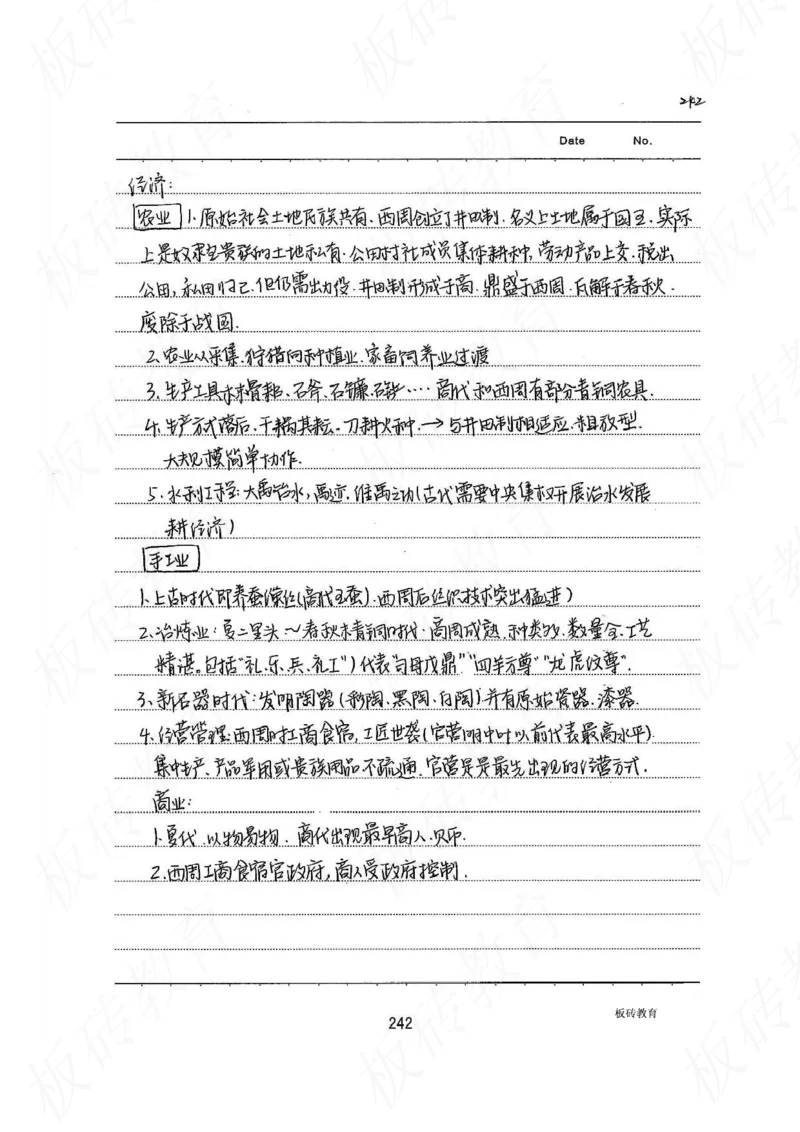 242
Date No.
经济:
农业 1.原始社会土地氏族共有、西周创立井田制、名义上土地属于国王、实际
上是奴隶主贵族的土地私有.公田村社成员集体耕种,劳动产品上交.税出
公田,私田归己.但仍需出力役.井田制形成于商.鼎盛于西周.瓦解于春秋.
废除于战国.
2.农业从采集.狩猎向种植业.家畜饲养业过渡
3.生产工具木耒骨耜、石斧、石镰石铲····商代和西周有部分青铜农具.
4.生产方式落后.千耦其耘.刀耕火种.→与井田制相适应.粗放型.
大规模简单协作.
5.水利工程:大禹治水,禹迹.维禹之功(古代需要中央集权开展治水发展
耕经济)
手工业
1.上古时代即养蚕缫丝(商代玉蚕).西周后丝织技术突出猛进)
2.冶炼业:夏二里头~春秋末青铜时代.商周成熟.种类多.数量全.工艺
精湛。包括“礼、乐、兵、礼工”)代表“司母戊鼎”“四羊方尊”“龙虎纹尊”.
3.新石器时代:发明陶器(彩陶、黑陶、白陶)并有原始瓷器.漆器.
4.经营管理:西周时工商食官,工匠世袭(官营明中叶以前代表最高水平).
集中生产、产品军用或贵族用品不流通.官营是是最先出现的经营方式.
商业:
1.夏代.以物易物.商代出现最早商人.贝币.
2.西周工商食官官政府,商人受政府控制.
242
板砖教育